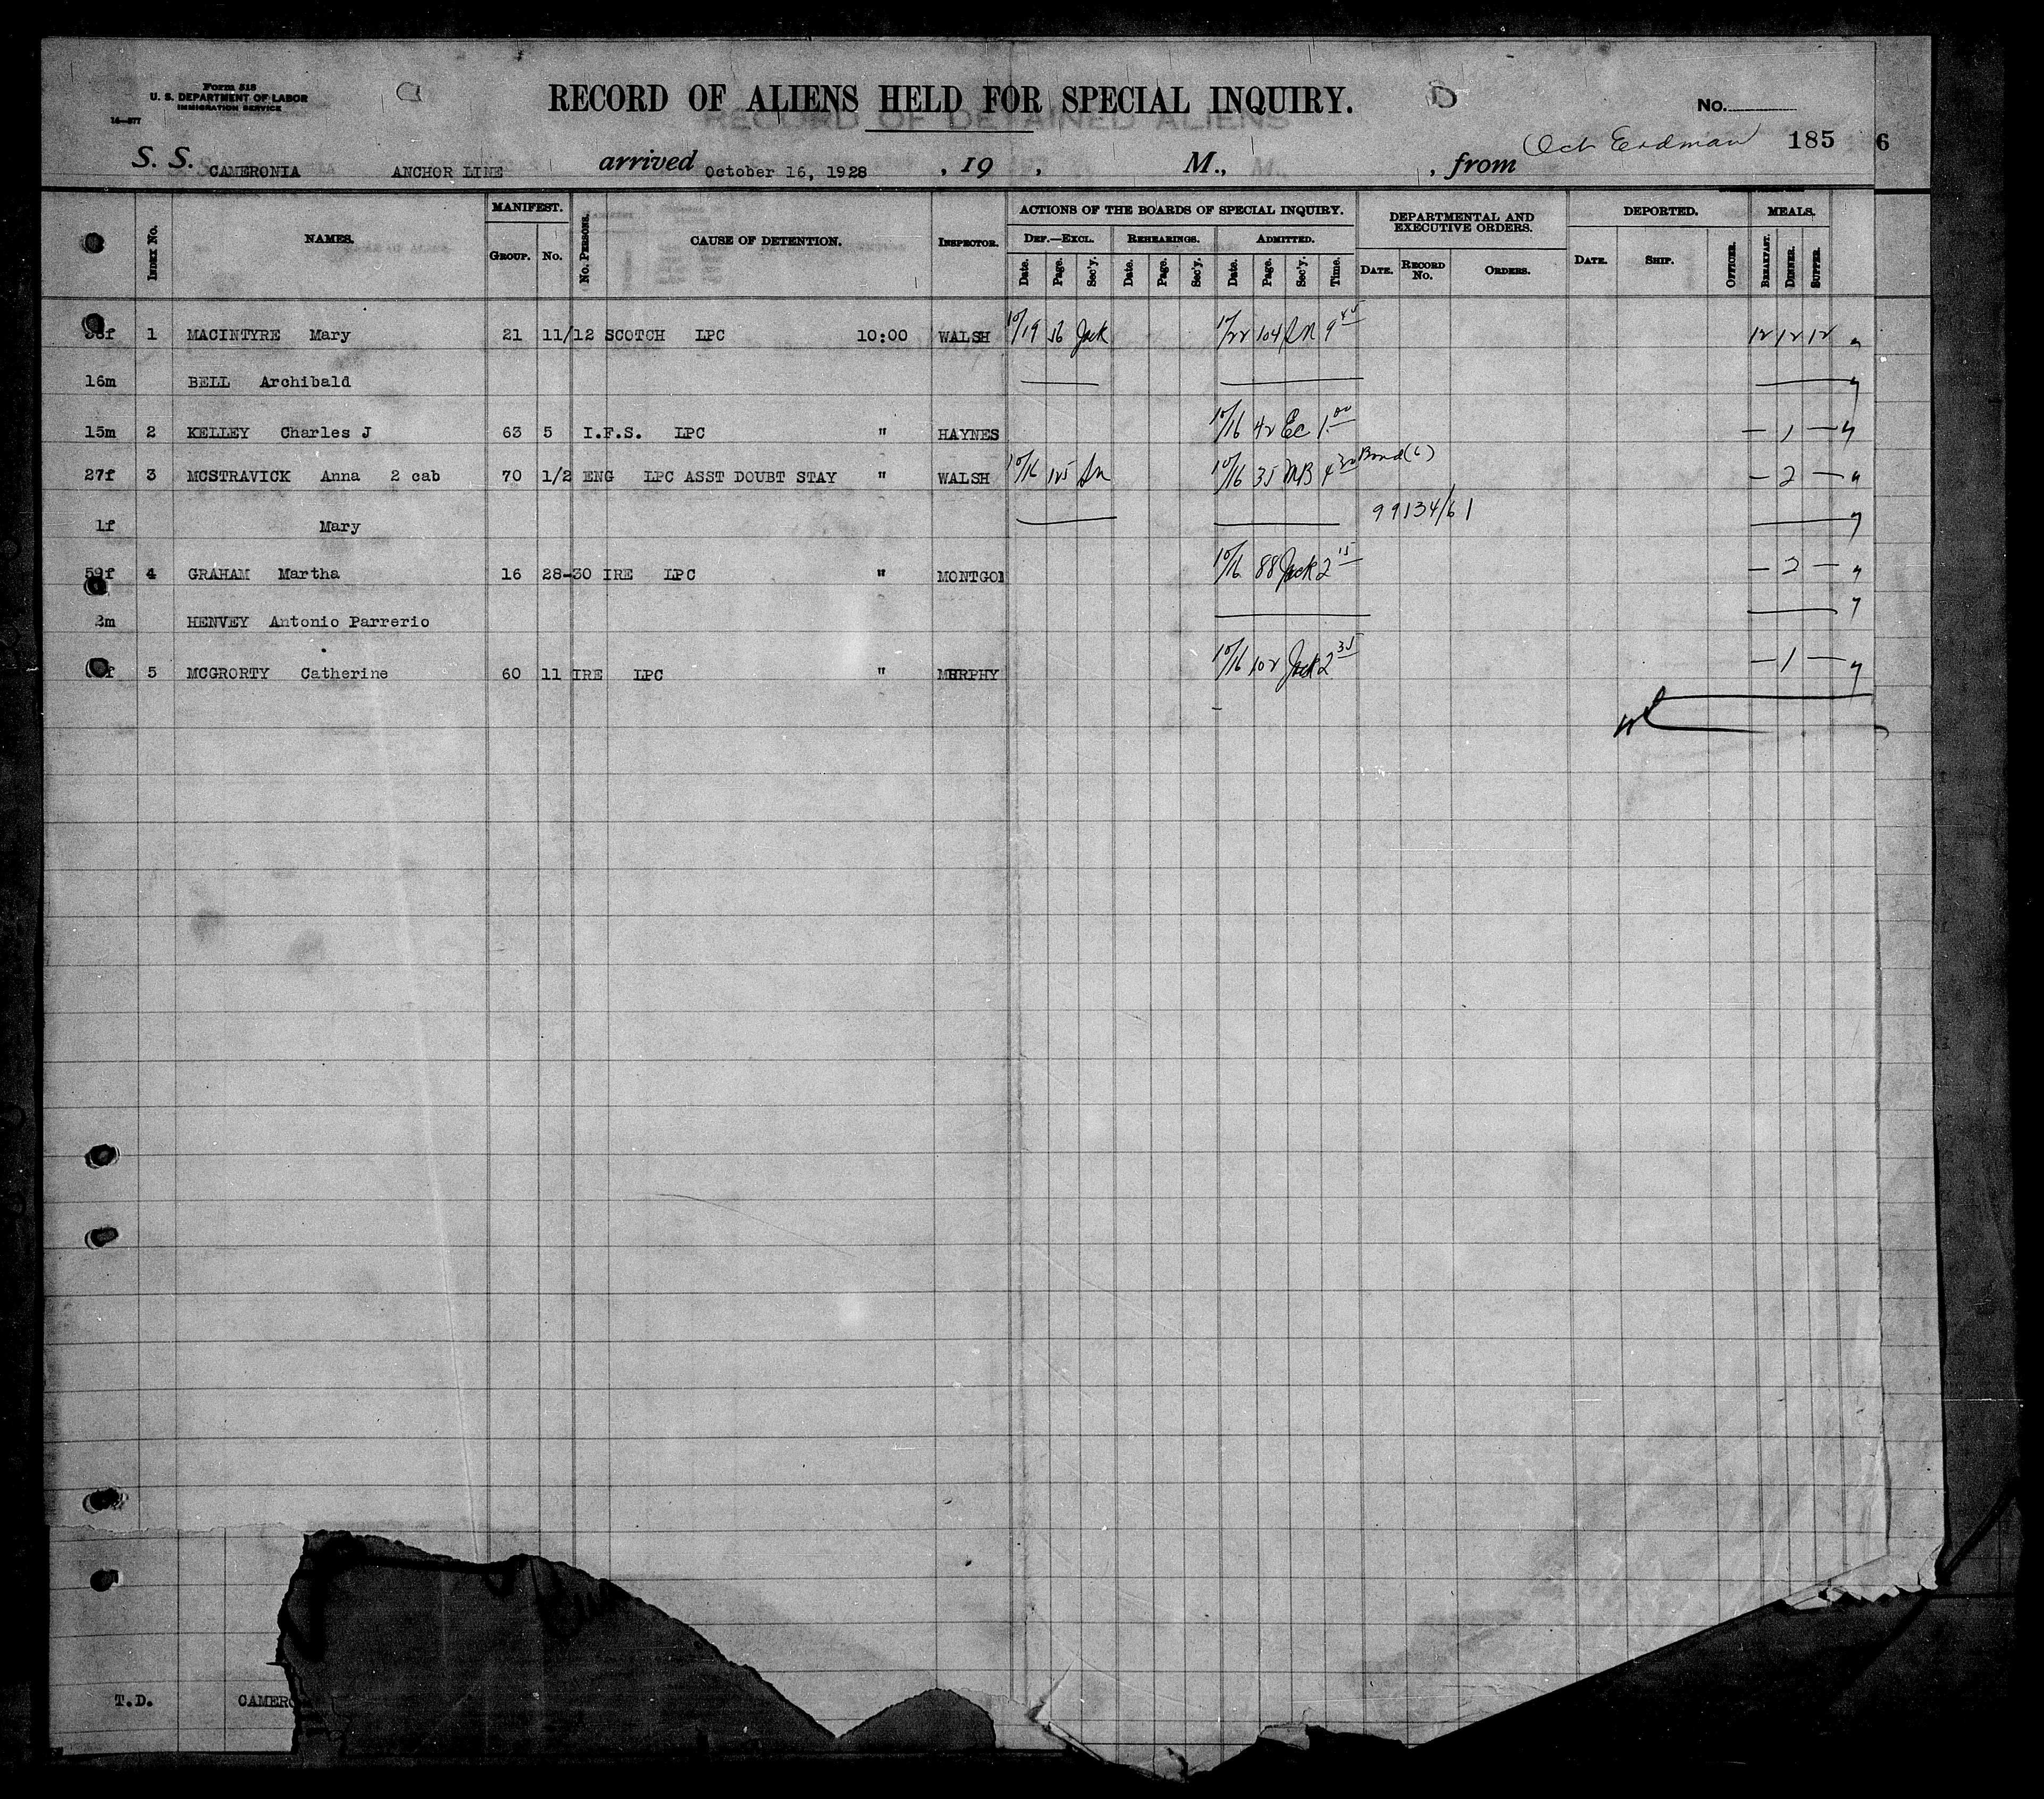 Form 518
U. S. DEPARTMENT OF LABOR
IMMIGRATION SERVICE
14—577
RECORD OF ALIENS HELD FOR SPECIAL INQUIRY.
RECORD OF DETAINED ALIENS
No.
Erdman 185 6
S. S. CAMERONIA ANCHOR LINE arrived October 16, 1928 , 19 , M., , from
INDEX No. NAMES. MANIFEST. GROUP. No. No. PERSONS. CAUSE OF DETENTION. INSPECTOR. ACTIONS OF THE BOARDS OF SPECIAL INQUIRY. DEF.—EXCL. Date. Page. Sec'y. REHEARINGS. Date. Page. Sec'y. ADMITTED. Date. Page. Sec'y. Time. DEPARTMENTAL AND EXECUTIVE ORDERS. DATE. RECORD No. ORDERS. DEPORTED. DATE. SHIP. OFFICER. MEALS. BREAKFAST. DINNER. SUPPER.
1 MACINTYRE Mary 21 11/12 SCOTCH LPC 10:00 WALSH 10/19 56 Jack 10/22 104 9 45 12 12 12
16m BELL Archibald
15m 2 KELLEY Charles J 63 5 I.F.S. LPC " HAYNES 10/16 42 Ec 1 00 — 1 —
27f 3 MCSTRAVICK Anna 2 cab 70 1/2 ENG LPC ASST DOUBT STAY " WALSH 10/16 125 10/16 35 MB 4 30 Bond (6) — 2 —
1f Mary 99134/61
59f 4 GRAHAM Martha 16 28-30 IRE LPC " MONTGOM 10/16 88 Jack 2 15 — 2 —
2m HENVEY Antonio Parrerio
5 MCGRORTY Catherine 60 11 IRE LPC " MURPHY 10/16 102 Jack 2 35 — 1 —
T.D. CAMERO